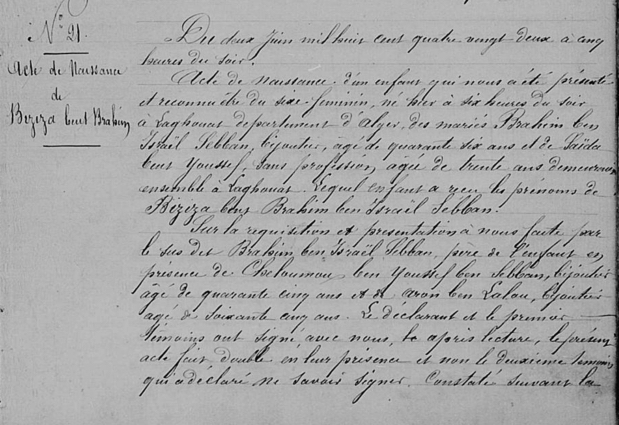 N° 21.
Acte de Naissance
de
Beziza bent Brahim
Du deux Juin mil huit cent quatre vingt deux à cinq
heures du soir.
Acte de naissance d'un enfant qui nous a été présenté
et reconnu être du sexe féminin, né hier à six heures du soir
à Laghouat département d'Alger, des mariés Brahim ben
Israël Sebban, bijoutier, agé de quarante six ans et de Saïda
bent Youssef, sans profession, agée de trente ans demeurant
ensemble à Laghouat. Lequel enfant a reçu les prénoms de
Beziza bent Brahim ben Israël Sebban.
Sur la requisition et présentation à nous faite par
le sus dit Brahim ben Israël Sebban, père de l'enfant en
présence de Cheloumou ben Youssef ben Sebban, bijoutier
âgé de quarante cinq ans et de Aron ben Lalou, bijoutier
agé de soixante cinq ans. Le déclarant et le premier
témoins ont signé avec nous, après lecture, le présent
acte fait double en leur présence et non le deuxième témoin
qui a déclaré ne savoir signer. Constaté suivant la